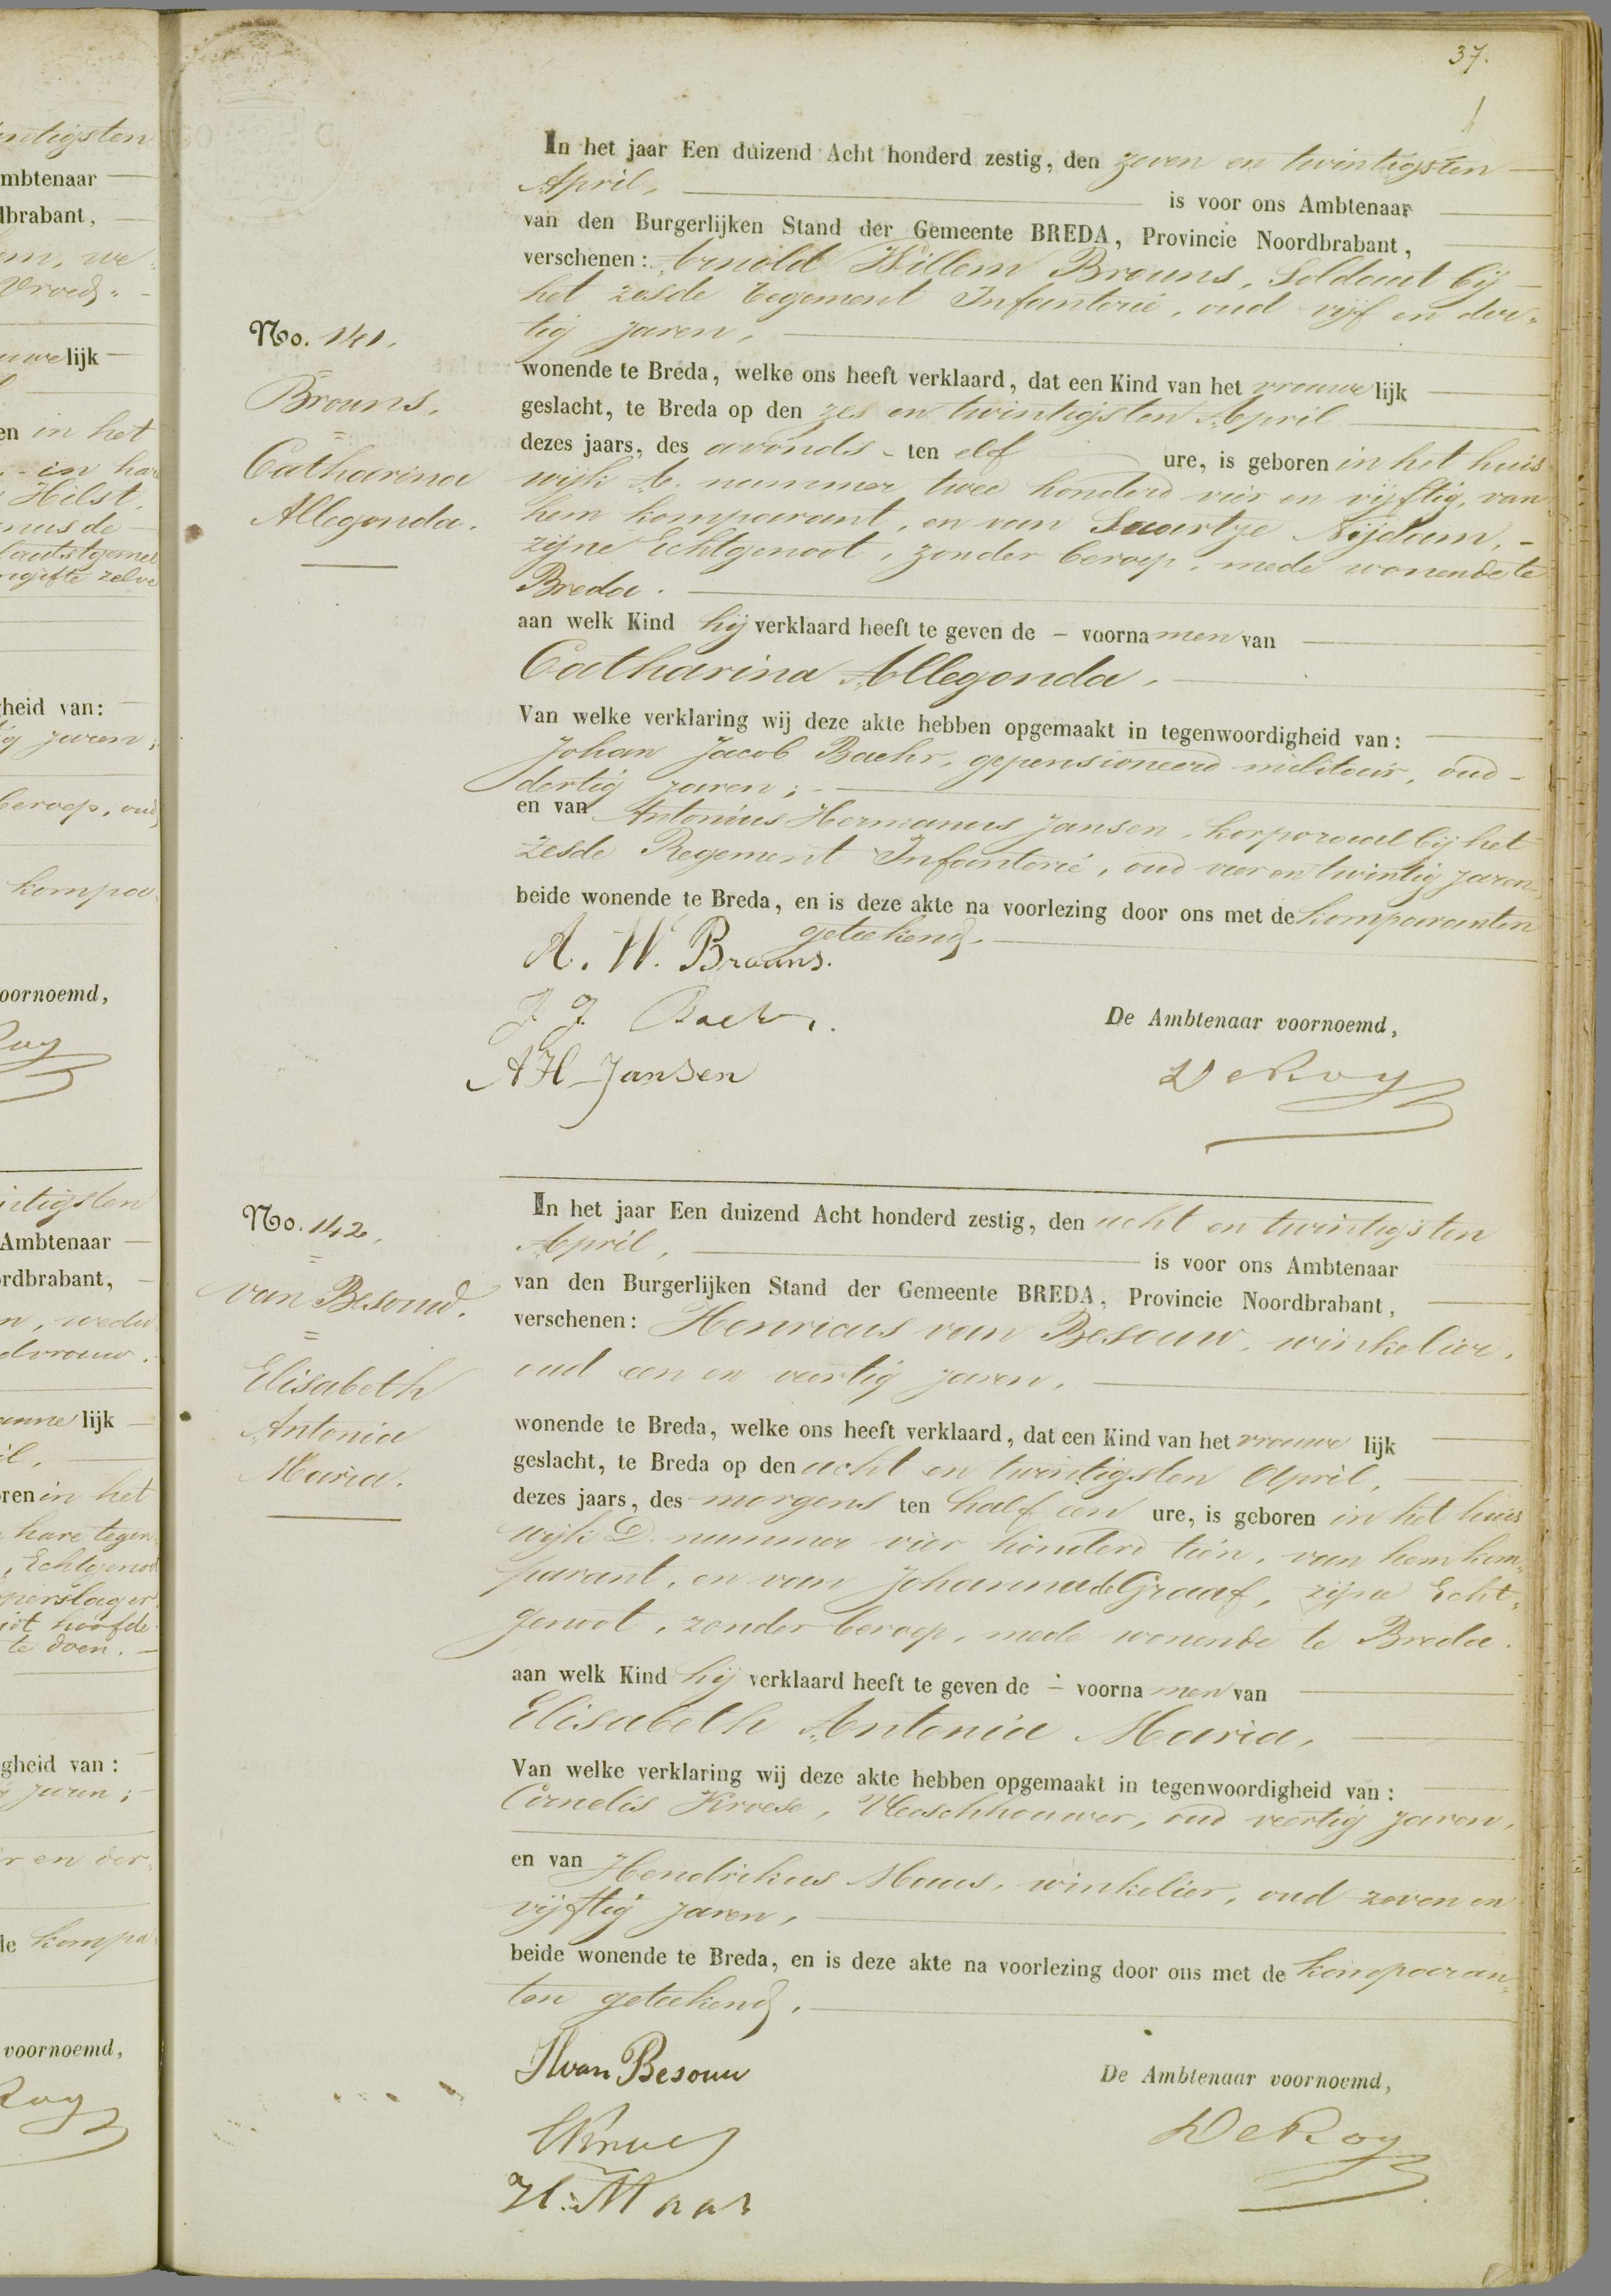 37.
In het jaar Een duizend Acht honderd zestig, den zeven en twintigsten
April, is voor ons Ambtenaar
van den Burgerlijken Stand der Gemeente BREDA, Provincie Noordbrabant,
verschenen: Arnold Willem Brouns, Soldaat bij
het zesde Regement Infanterie, oud vijf en der-
tig jaren,
No. 141.
Brouns,
Catharina
Allegonda.
wonende te Breda, welke ons heeft verklaard, dat een Kind van het vrouwelijk
geslacht, te Breda op den zes en twintigsten April
dezes jaars, des avonds - ten elf ure, is geboren in het huis
wijk A. nummer twee honderd vier en vijftig, van
hem komparant, en van Saartje Nijdam, -
zijne Echtgenoot, zonder beroep, mede wonende te
Breda.
aan welk Kind hij verklaard heeft te geven de - voornamen van
Catharina Allegonda,
Van welke verklaring wij deze akte hebben opgemaakt in tegenwoordigheid van:
Johan Jacob Baehr, gepensioneerd militair, oud -
dertig jaren; -
en van Antonius Hermanus Jansen, korporaal bij het
zesde Regement Infanterie, oud vier en twintig jaren,
beide wonende te Breda, en is deze akte na voorlezing door ons met de komparanten
geteekend.
A. W. Brouns.
J J Baehr.
A H Jansen
De Ambtenaar voornoemd,
De Roy
No. 142.
van Besouw.
Elisabeth
Antonia
Maria.
In het jaar Een duizend Acht honderd zestig, den acht en twintigsten
April, is voor ons Ambtenaar
van den Burgerlijken Stand der Gemeente BREDA, Provincie Noordbrabant,
verschenen: Henricus van Besouw, winkelier,
oud een en veertig jaren,
wonende te Breda, welke ons heeft verklaard, dat een Kind van het vrouwe lijk
geslacht, te Breda op den acht en twintigsten April,
dezes jaars, des morgens ten half een ure, is geboren in het huis
wijk D. nummer vier honderd tien, van hem kom-
parant, en van Johanna de Graaf, zijne Echt-
genoot, zonder beroep, mede wonende te Breda.
aan welk Kind hij verklaard heeft te geven de - voornamen van
Elisabeth Antonia Maria,
Van welke verklaring wij deze akte hebben opgemaakt in tegenwoordigheid van:
Cornelis Kroese, Vleeschhouwer, oud veertig jaren,
en van Hendrikus Maas, winkelier, oud zeven en
vijftig jaren,
beide wonende te Breda, en is deze akte na voorlezing door ons met de komparan-
ten geteekend.
H van Besouw
H. Maas
De Ambtenaar voornoemd,
De Roy